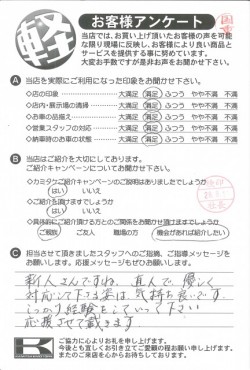 軽
お客様アンケート
当店では、お買い上げ頂いたお客様の声を可能
な限り現場に反映し、お客様により良い商品と
サービスを提供する事に努めています。
大変お手数ですが是非お声をお聞かせ下さい。
A 当店を実際にご利用になった印象をお聞かせ下さい。
◇店の印象 大満足 満足 ふつう やや不満 不満
◇店内・展示場の清掃 大満足 満足 ふつう やや不満 不満
◇お車の品揃え 大満足 満足 ふつう やや不満 不満
◇営業スタッフの対応 大満足 満足 ふつう やや不満 不満
◇納車時のお車の状態 大満足 満足 ふつう やや不満 不満
B 当店はご紹介を大切にしております。
ご紹介キャンペーンについてお聞かせ下さい。
◇カミタケご紹介キャンペーンのご説明はありましたでしょうか
はい いいえ
◇ご紹介を頂けますでしょうか
はい いいえ
◇具体的にご紹介頂ける方とのご関係をお聞かせ頂けますでしょうか
ご親族 ご友人 職場の方 機会があれば紹介したい
C 担当させて頂きましたスタッフへのご指摘、ご指導メッセージを
お願いします。応援メッセージもぜひお願いします。
新人さんですね。真人で、優しく
対応して下さる姿は、気持ち良いです。
しっかり経験をしていって下さい
応援させて戴きます
ご協力に心よりお礼を申し上げます。
今後とも宜しくお引き立てご愛顧の程お願い申し上げます。
またのご来店を心からお待ちしております。